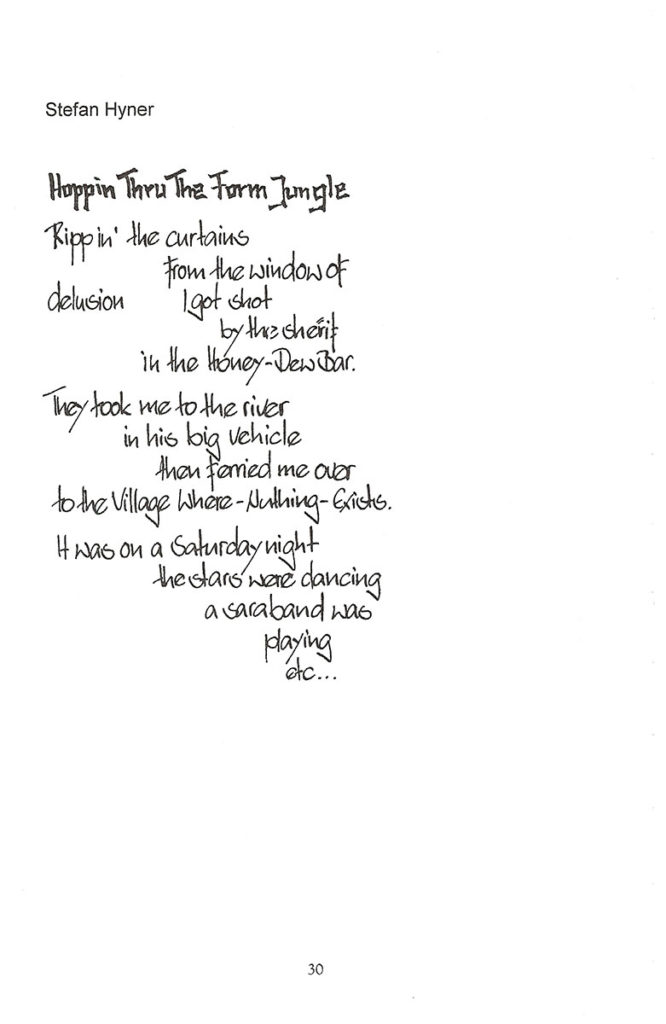 Stefan Hyner
Hoppin Thru The Form Jungle
Rippin' the curtains
from the window of
delusion I got shot
by the sherif
in the Honey-Dew Bar.
They took me to the river
in his big vehicle
then ferried me over
to the Village Where-Nuthing-Exists.
It was on a Saturday night
the stars were dancing
a saraband was
playing
etc...
30